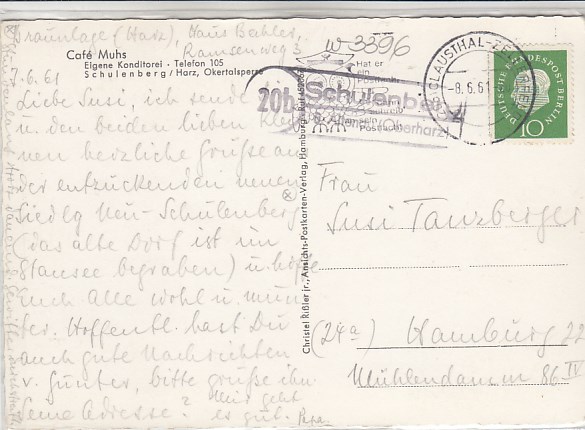 Braunlage (Harz), Haus Bechler,
Ramsenweg 3
Café Muhs
Eigene Konditorei · Telefon 105
Schulenberg/Harz, Okertalsperre
7.6.61
Liebe Susi, ich sende dir
u. den beiden lieben Klei-
nen herzliche Grüße aus
der entzückenden neuen
Siedlg Neu-Schulenberg
(das alte Dorf ist im
Stausee begraben) u. hoffe
euch alle wohl u. mun-
ter. Hoffentl. hast Du
auch gute Nachrichten
v. Günter, bitte grüße ihn
Seine Adresse? Mir geht
es gut. Papa
Christel Rißler jr., Ansichts-Postkarten-Verlag, Hamburg
W 3396
Hat er
ein
20b Schulenberg
(Oberharz)
CLAUSTHAL-ZELLERFELD
-8.6.61
DEUTSCHE BUNDESPOST BERLIN
10
Frau
Susi Tanzberger
(24a) Hamburg 22
Mühlendamm 86 IV